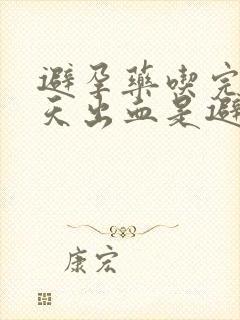 避孕药喫完
天出血是避
康宏